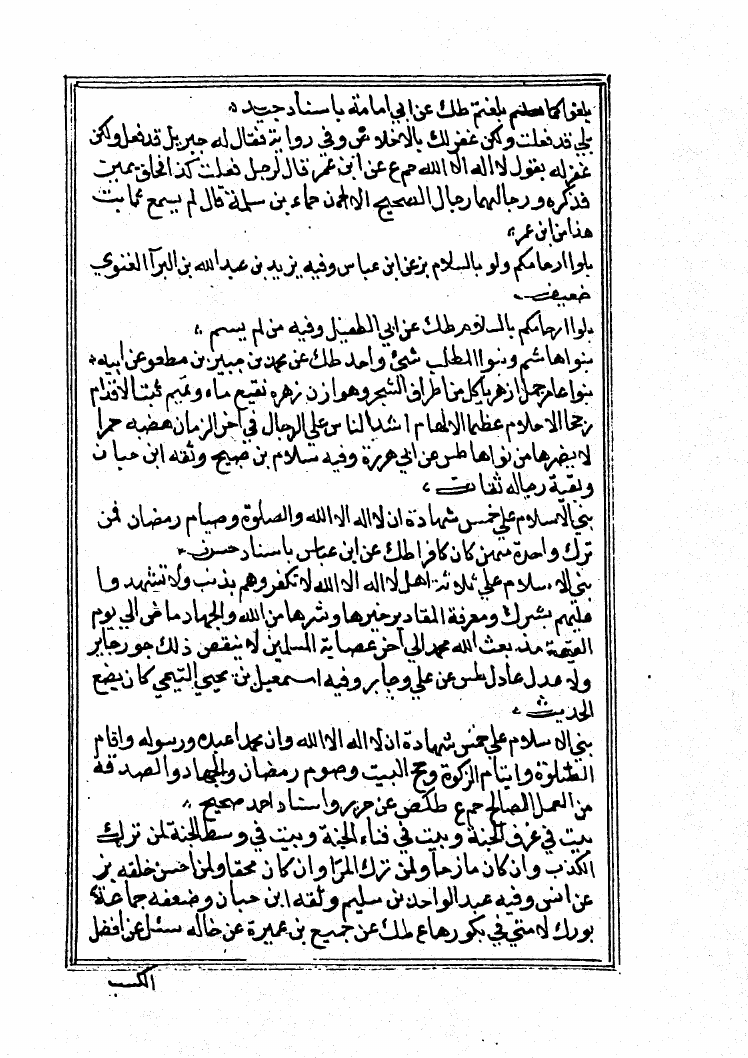 يلقوا كما بلغتم طك عن ابي امامة باسناد جيد
بلي قد فعلت ولكن غفر لك بالاخلاص وفي رواية فقال له جبريل قد فعل ولكن
غفر له بقول لا اله الا الله حم ع عن ابن عمر قال لرجل فعلت كذا فحلف بيمين
فذكره ورجالهما رجال الصحيح الا ان حماد بن سلمة قال لم يسمع ثابت
هذا من ابن عمر
بلوا ارحامكم ولو بالسلام بز عن ابن عباس وفيه يزيد بن عبد الله بن البرآ الغنوي
ضعيف
بلوا ارحامكم بالسلام طك عن ابي الطفيل وفيه من لم يسم
بنوا هاشم وبنوا المطلب شئ واحد طك عن محمد بن جبير بن مطعم عن ابيه
بنوا عامر جمل ازهر ياكل من اطراف الشجر وهوازن زهره نقيع ماء وتميم ثبت الاقدام
رجحا الاحلام عظما الالهام اشد الناس علي الرجال في آخر الزمان هضبه حمرا
لا يضرها من نواها طس عن ابي هريرة وفيه سلام بن صبيح وثقه ابن حبان
وبقية رجاله ثقات
بني الاسلام علي خمس شهادة ان لا اله الا الله والصلوة وصيام رمضان فمن
ترك واحدة منهن كان كافرا طك عن ابن عباس باسناد حسن
بني الاسلام علي ثلاثة اهل لا اله الا الله لا تكفروهم بذنب ولا تشهدوا
عليهم بشرك ومعرفة المقادير خيرها وشرها من الله والجهاد ماض الي يوم
القيمة منذ بعث الله محمد الي آخر عصابة المسلمين لا ينقض ذلك جور جاير
ولا عدل عادل طس عن علي وجابر وفيه اسمعيل بن يحيي التيمي كان يضع
الحديث
بني الاسلام علي خمس شهادة ان لا اله الا الله وان محمدا عبده ورسوله واقام
الصلوة وايتاء الزكوة وحج البيت وصوم رمضان والجهاد والصدقة
من العمل الصالح حم ع طكص عن جرير واسناد احمد صحيح
بيت في غرف الجنة وبيت في فناء الجنة وبيت في وسط الجنة لمن ترك
الكذب وان كان مازحا ولمن ترك المرا وان كان محقا ولمن احسن خلقه بز
عن انس وفيه عبد الواحد بن سليم وثقه ابن حبان وضعفه جماعة
بورك لامتي في بكورها ع طك عن جميع بن عميرة عن خاله سئل عن افضل
الكسب